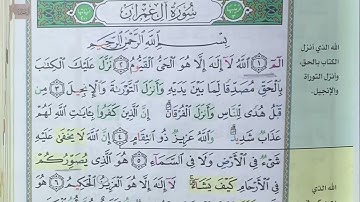 سُورَةُ آلِ عِمْرَانَ
بِسْمِ اللَّهِ الرَّحْمَٰنِ الرَّحِيمِ
الٓمٓ ١ اللَّهُ لَا إِلَٰهَ إِلَّا هُوَ الْحَيُّ الْقَيُّومُ ٢ نَزَّلَ عَلَيْكَ الْكِتَٰبَ
بِالْحَقِّ مُصَدِّقًا لِّمَا بَيْنَ يَدَيْهِ وَأَنزَلَ التَّوْرَىٰةَ وَالْإِنجِيلَ ٣ مِن
قَبْلُ هُدًى لِّلنَّاسِ وَأَنزَلَ الْفُرْقَانَ إِنَّ الَّذِينَ كَفَرُوا بِـَٔايَٰتِ اللَّهِ لَهُمْ
عَذَابٌ شَدِيدٌ وَاللَّهُ عَزِيزٌ ذُو انتِقَامٍ ٤ إِنَّ اللَّهَ لَا يَخْفَىٰ عَلَيْهِ
شَيْءٌ فِي الْأَرْضِ وَلَا فِي السَّمَاءِ ٥ هُوَ الَّذِي يُصَوِّرُكُمْ
فِي الْأَرْحَامِ كَيْفَ يَشَاءُ لَا إِلَٰهَ إِلَّا هُوَ الْعَزِيزُ الْحَكِيمُ ٦
الله الذي أنزل
الكتاب بالحق،
وأنزل التوراة
والإنجيل.
الله الذي